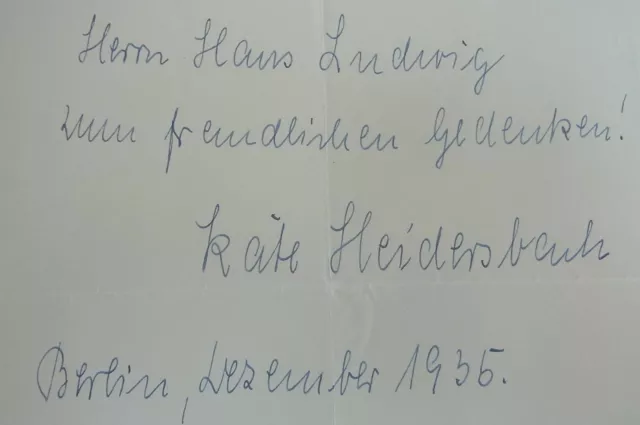 Herrn Hans Ludwig
zum freundlichen Gedenken!
Käte Heidersbach
Berlin, Dezember 1935.